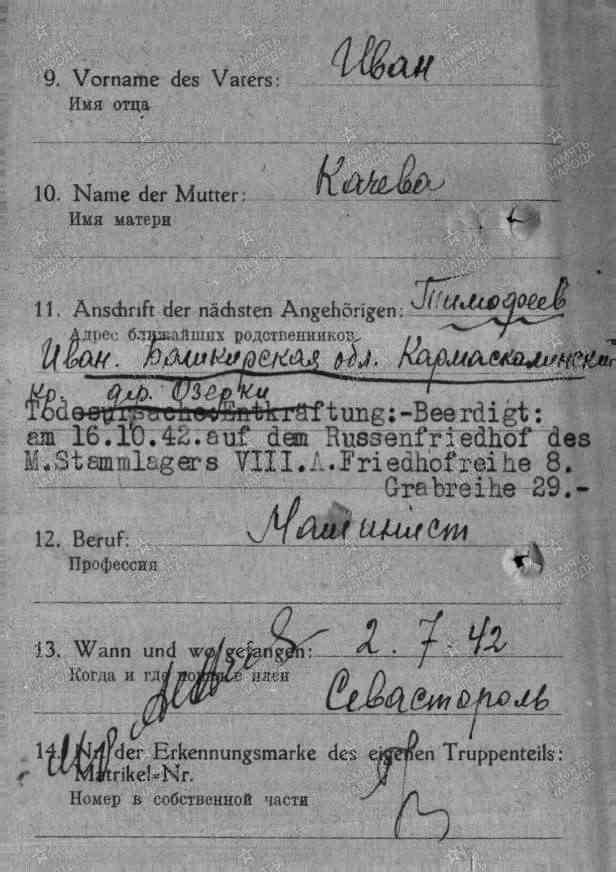 9. Vorname des Vaters: Иван
Имя отца
10. Name der Mutter: Качева
Имя матери
11. Anschrift der nächsten Angehörigen: Тимофеев
Адрес ближайших родственников
Иван. Башкирская обл. Кармаскалинский
кр. дер. Озерки
Todesursache:Entkräftung:-Beerdigt:
am 16.10.42.auf dem Russenfriedhof des
M.Stammlagers VIII.A.Friedhofreihe 8.
Grabreihe 29.-
12. Beruf: Машинист
Профессия
13. Wann und wo gefangen: 2.7.42
Когда и где
Севастороль
14. Nr. der Erkennungsmarke des eigenen Truppenteils:
Matrikel-Nr.
Номер в собственной части